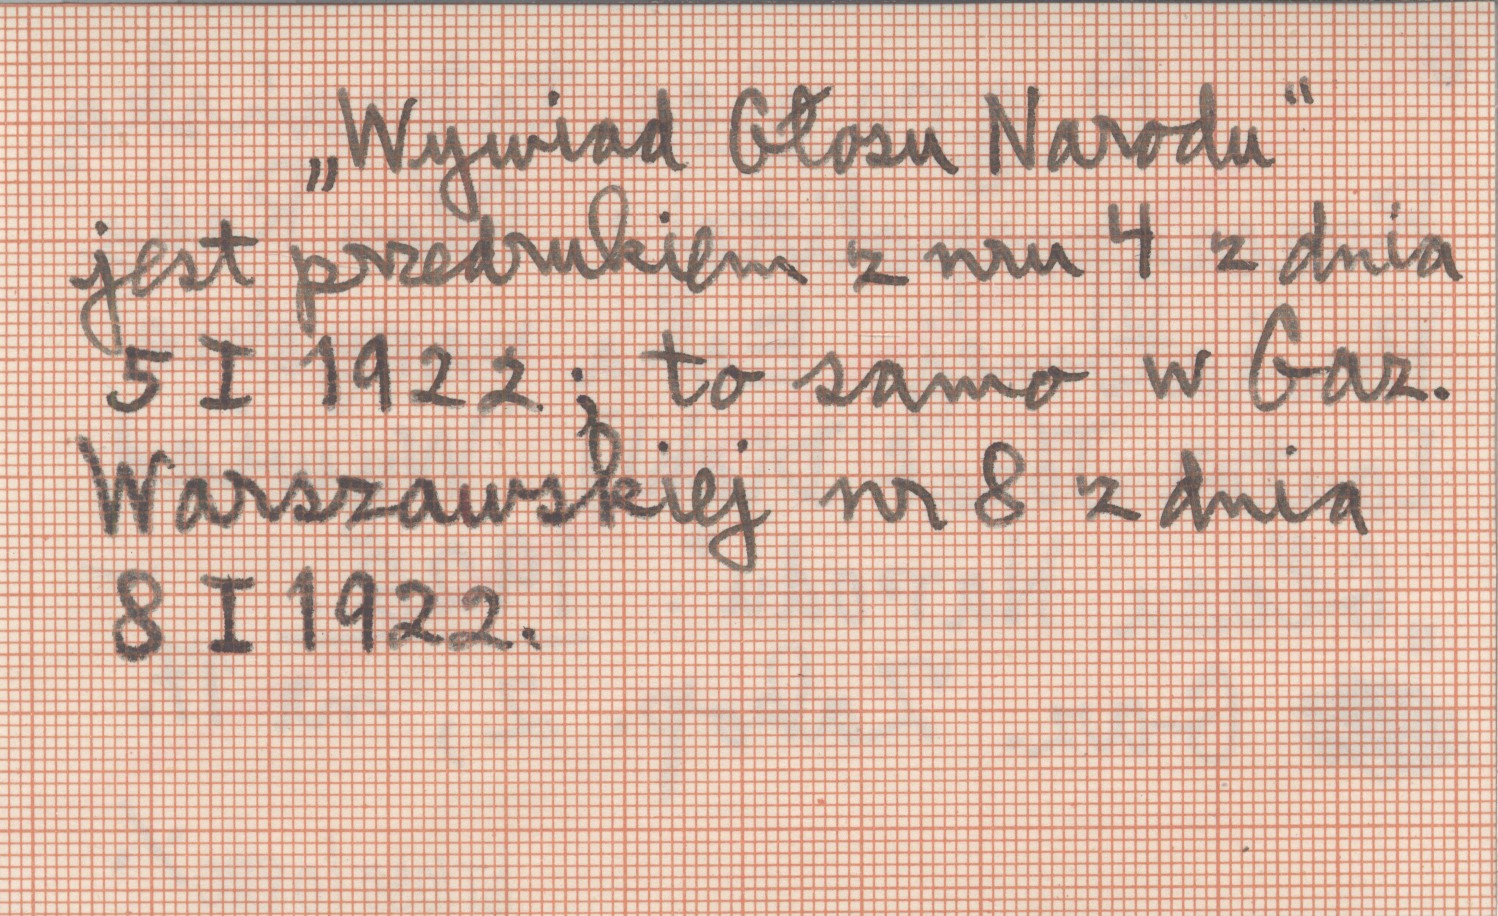 „Wywiad Głosu Narodu"
jest przedrukiem z nru 4 z dnia
5 I 1922; to samo w Gaz.
Warszawskiej nr 8 z dnia
8 I 1922.